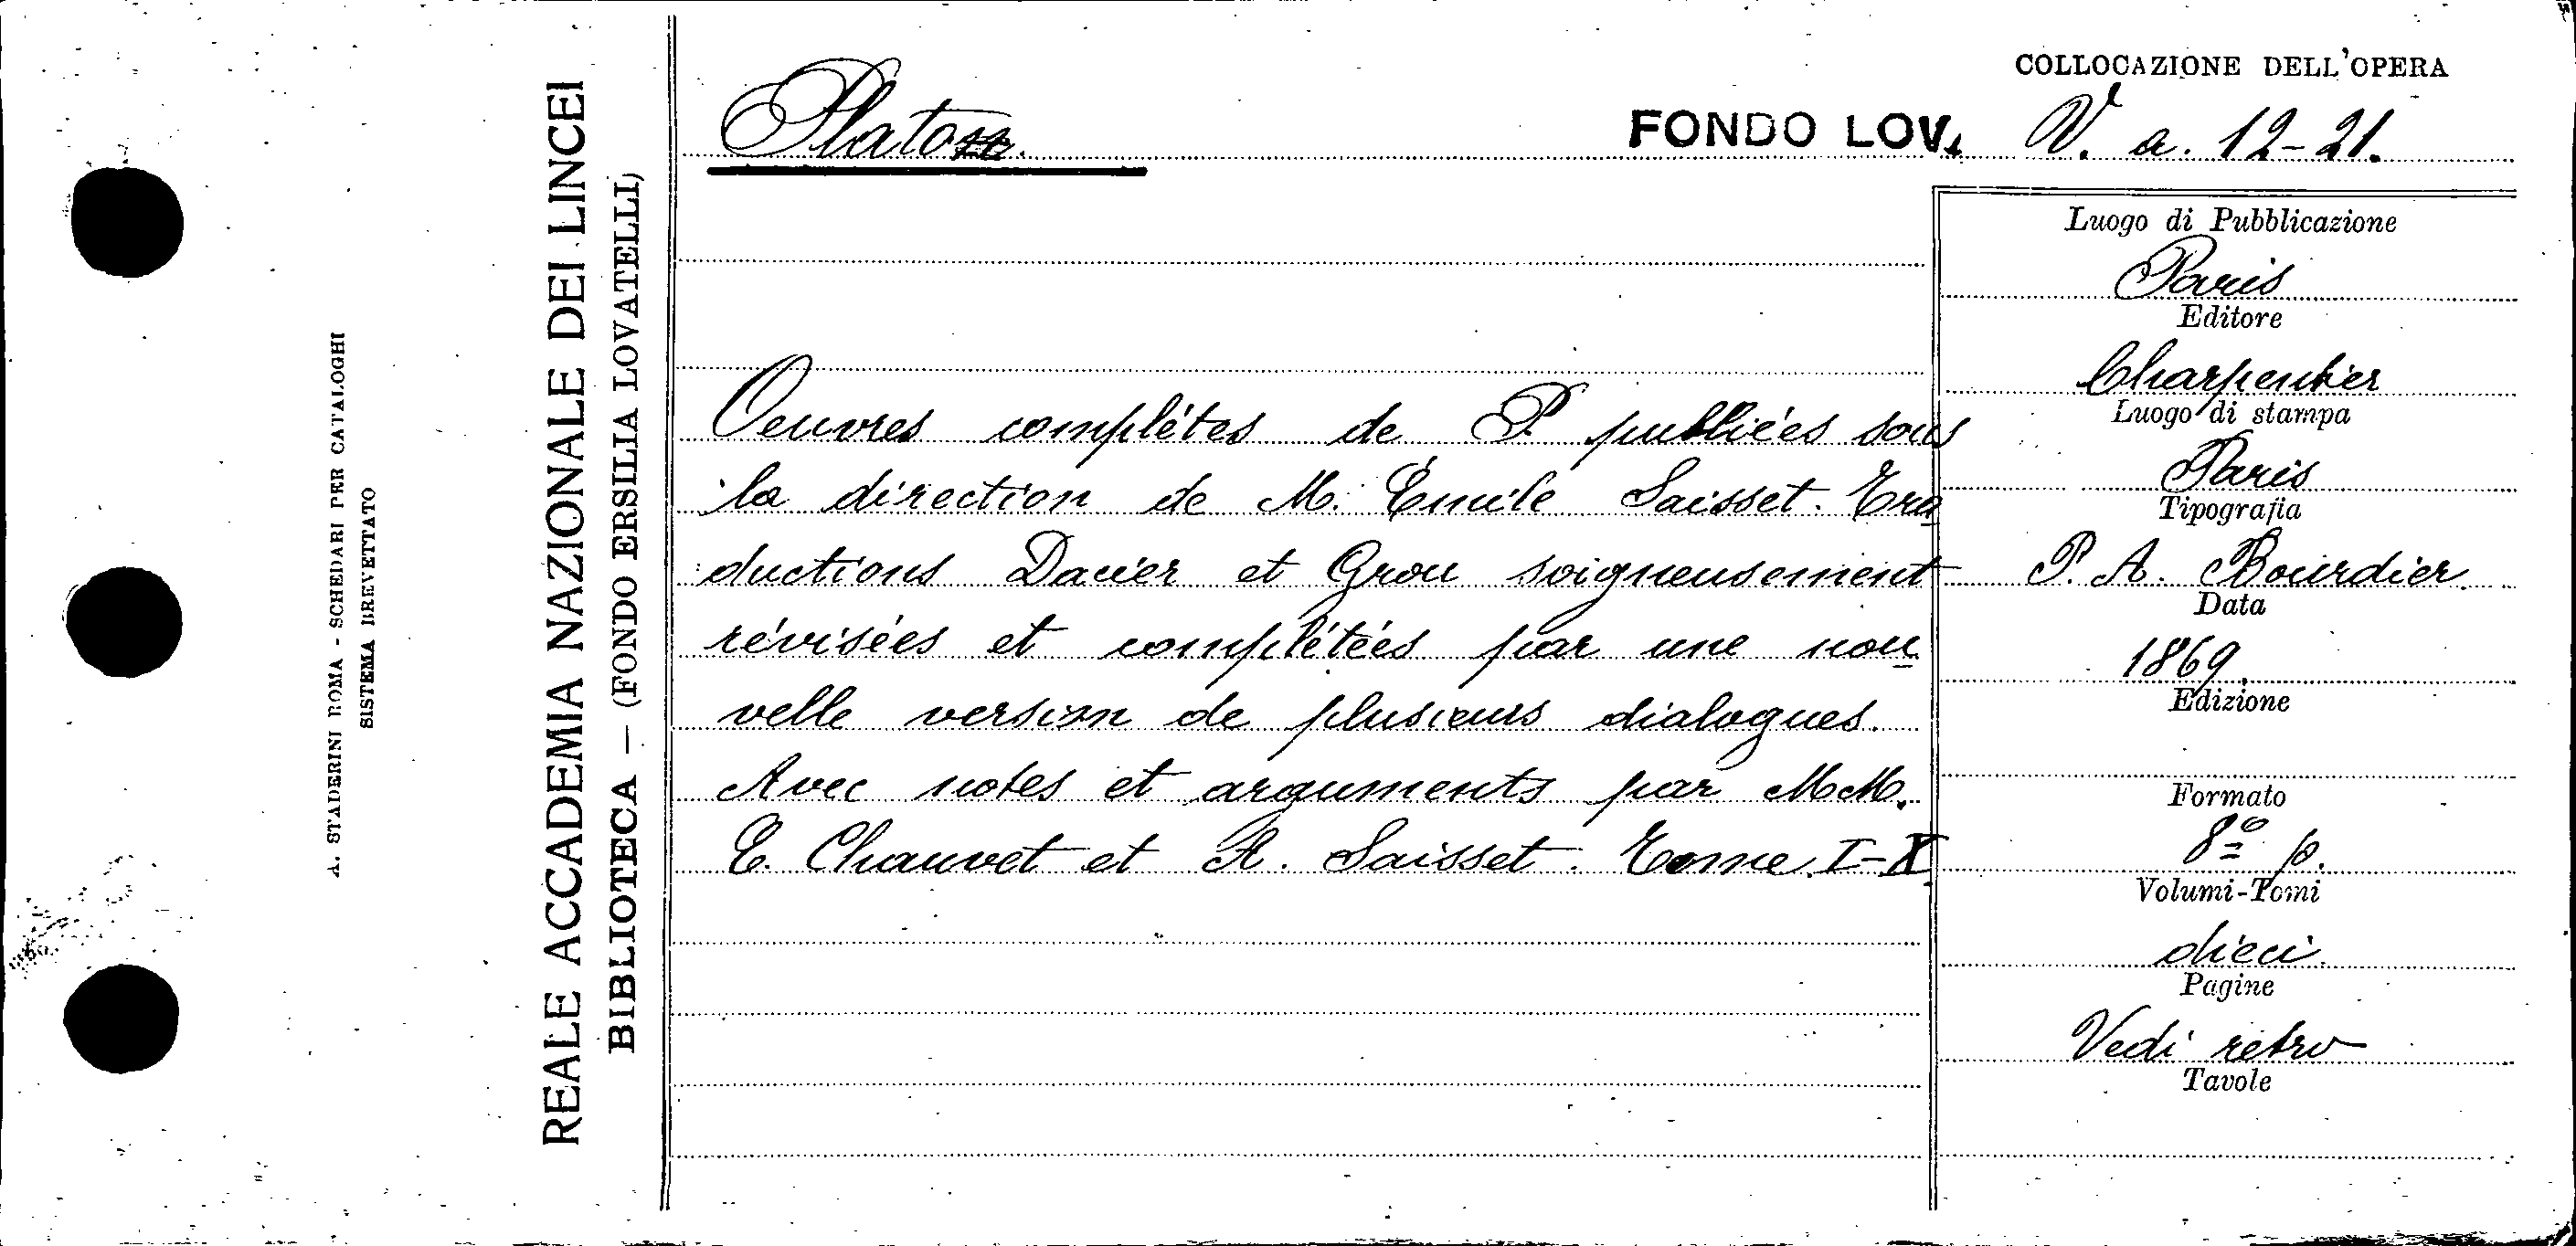 A. STADERINI ROMA - SCHEDARI PER CATALOGHI
SISTEMA BREVETTATO
REALE ACCADEMIA NAZIONALE DEI LINCEI
BIBLIOTECA — (FONDO ERSILIA LOVATELLI)
COLLOCAZIONE DELL'OPERA
FONDO LOV. V. a. 12-21.
Oeuvres complétes de P. publiées sous
la direction de M. Émile Saisset. Tra
ductions Dacier et Grou soigneusement
révisées et complétées par une nou
velle version de plusieurs dialogues.
Avec notes et arguments par MM.
E. Chauvet et A. Saisset. Tome I-X
Luogo di Pubblicazione
Paris
Editore
Charpentier
Luogo di stampa
Paris
Tipografia
P. A. Bourdier
Data
1869.
Edizione
Formato
8º p.
Volumi-Tomi
dieci
Pagine
Vedi retro
Tavole